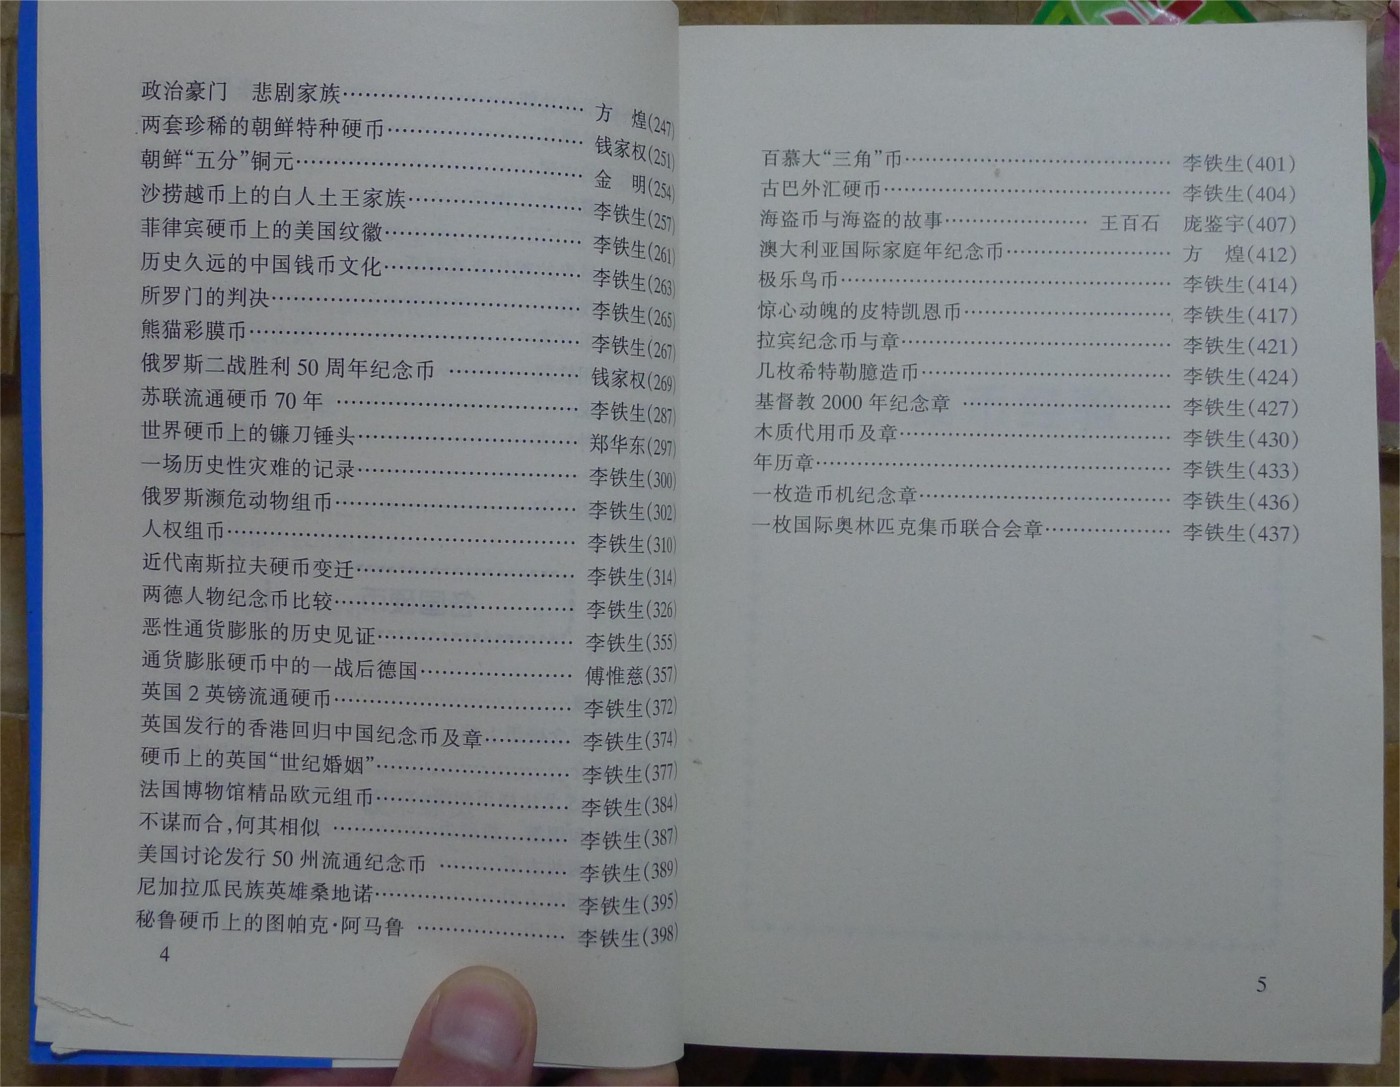 政治豪门　悲剧家族……………………………方　煌(247)
两套珍稀的朝鲜特种硬币…………………………钱家权(251)
朝鲜“五分”铜元……………………………………金　明(254)
沙捞越币上的白人土王家族………………………李铁生(257)
菲律宾硬币上的美国纹徽…………………………李铁生(261)
历史久远的中国钱币文化…………………………李铁生(263)
所罗门的判决………………………………………李铁生(265)
熊猫彩膜币…………………………………………李铁生(267)
俄罗斯二战胜利 50 周年纪念币 …………………钱家权(269)
苏联流通硬币 70 年 ………………………………李铁生(287)
世界硬币上的镰刀锤头……………………………郑华东(297)
一场历史性灾难的记录……………………………李铁生(300)
俄罗斯濒危动物组币………………………………李铁生(302)
人权组币……………………………………………李铁生(310)
近代南斯拉夫硬币变迁……………………………李铁生(314)
两德人物纪念币比较………………………………李铁生(326)
恶性通货膨胀的历史见证…………………………李铁生(355)
通货膨胀硬币中的一战后德国……………………傅惟慈(357)
英国 2 英镑流通硬币………………………………李铁生(372)
英国发行的香港回归中国纪念币及章……………李铁生(374)
硬币上的英国“世纪婚姻”…………………………李铁生(377)
法国博物馆精品欧元组币…………………………李铁生(384)
不谋而合,何其相似 ………………………………李铁生(387)
美国讨论发行 50 州流通纪念币 …………………李铁生(389)
尼加拉瓜民族英雄桑地诺…………………………李铁生(395)
秘鲁硬币上的图帕克·阿马鲁 ……………………李铁生(398)
4
百慕大“三角”币……………………………………李铁生(401)
古巴外汇硬币………………………………………李铁生(404)
海盗币与海盗的故事…………………王百石　庞鉴宇(407)
澳大利亚国际家庭年纪念币………………………方　煌(412)
极乐鸟币……………………………………………李铁生(414)
惊心动魄的皮特凯恩币……………………………李铁生(417)
拉宾纪念币与章……………………………………李铁生(421)
几枚希特勒臆造币…………………………………李铁生(424)
基督教 2000 年纪念章 ……………………………李铁生(427)
木质代用币及章……………………………………李铁生(430)
年历章………………………………………………李铁生(433)
一枚造币机纪念章…………………………………李铁生(436)
一枚国际奥林匹克集币联合会章…………………李铁生(437)
5